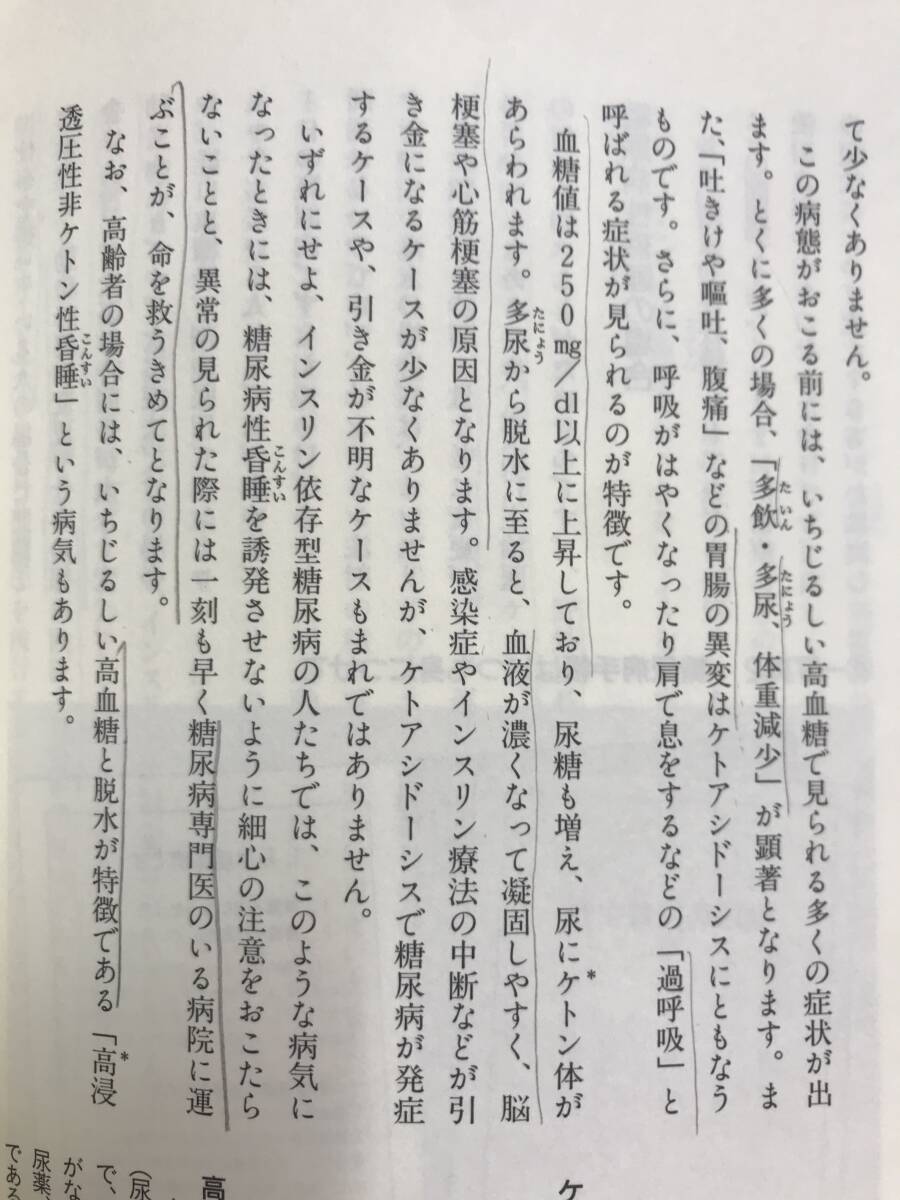 て少なくありません。
この病態がおこる前には、いちじるしい高血糖で見られる多くの症状が出
ます。とくに多くの場合、「多飲・多尿、体重減少」が顕著となります。ま
た、「吐きけや嘔吐、腹痛」などの胃腸の異変はケトアシドーシスにともなう
ものです。さらに、呼吸がはやくなったり肩で息をするなどの「過呼吸」と
呼ばれる症状が見られるのが特徴です。
血糖値は250mg/dl以上に上昇しており、尿糖も増え、尿にケトン体が
あらわれます。多尿から脱水に至ると、血液が濃くなって凝固しやすく、脳
梗塞や心筋梗塞の原因となります。感染症やインスリン療法の中断などが引
き金になるケースが少なくありませんが、ケトアシドーシスで糖尿病が発症
するケースや、引き金が不明なケースもまれではありません。
いずれにせよ、インスリン依存型糖尿病の人たちでは、このような病気に
なったときには、糖尿病性昏睡を誘発させないように細心の注意をおこたら
ないことと、異常の見られた際には一刻も早く糖尿病専門医のいる病院に運
ぶことが、命を救うきめてとなります。
なお、高齢者の場合には、いちじるしい高血糖と脱水が特徴である「高浸
透圧性非ケトン性昏睡」という病気もあります。
ケ
高
(尿
で、
がな
尿薬、
である